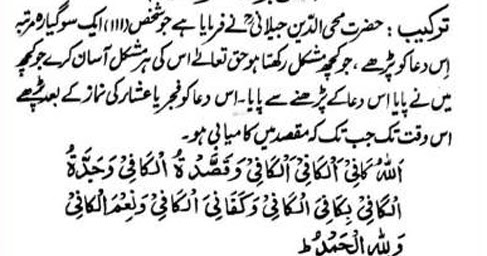 ترکیب : حضرت محی الدین جیلانیؒ نے فرمایا ہے جو شخص (۱۱۱) ایک سو گیارہ مرتبہ
اِس دعا کو پڑھے ، جو کچھ مشکل رکھتا ہو حق تعالےٰ اس کی ہر مشکل آسان کرے جو کچھ
میں نے پایا اس دعا کے پڑھنے سے پایا۔ اس دعا کو فجر یا عشار کی نماز کے بعد پڑھے
اس وقت تک جب تک کہ مقصد میں کامیابی ہو۔
اَللهُ كَافِىْ اَلْكَافِىْ اَلْكَافِىْ وَقَصَّدْةُ الْكَافِىْ وَحَدَّةُ
الْكَافِىْ بِكَافِىَ الْكَافِىْ وَكَفَانِىَ الْكَافِىْ وَنِعْمَ الْكَافِىْ
وَلِلّٰهِ الْحَمْدُ ط